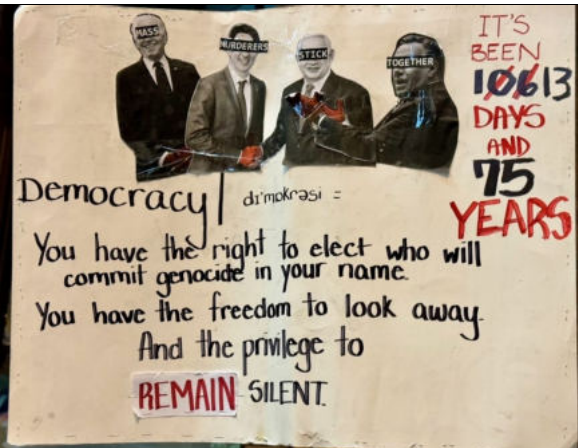 MASS
MURDERERS
STICK
TOGETHER
IT'S
BEEN
613
DAYS
AND
75
YEARS
Democracy| dɪ'mɒkrəsi =
You have the right to elect who will
commit genocide in your name.
You have the freedom to look away.
And the privilege to
REMAIN SILENT.